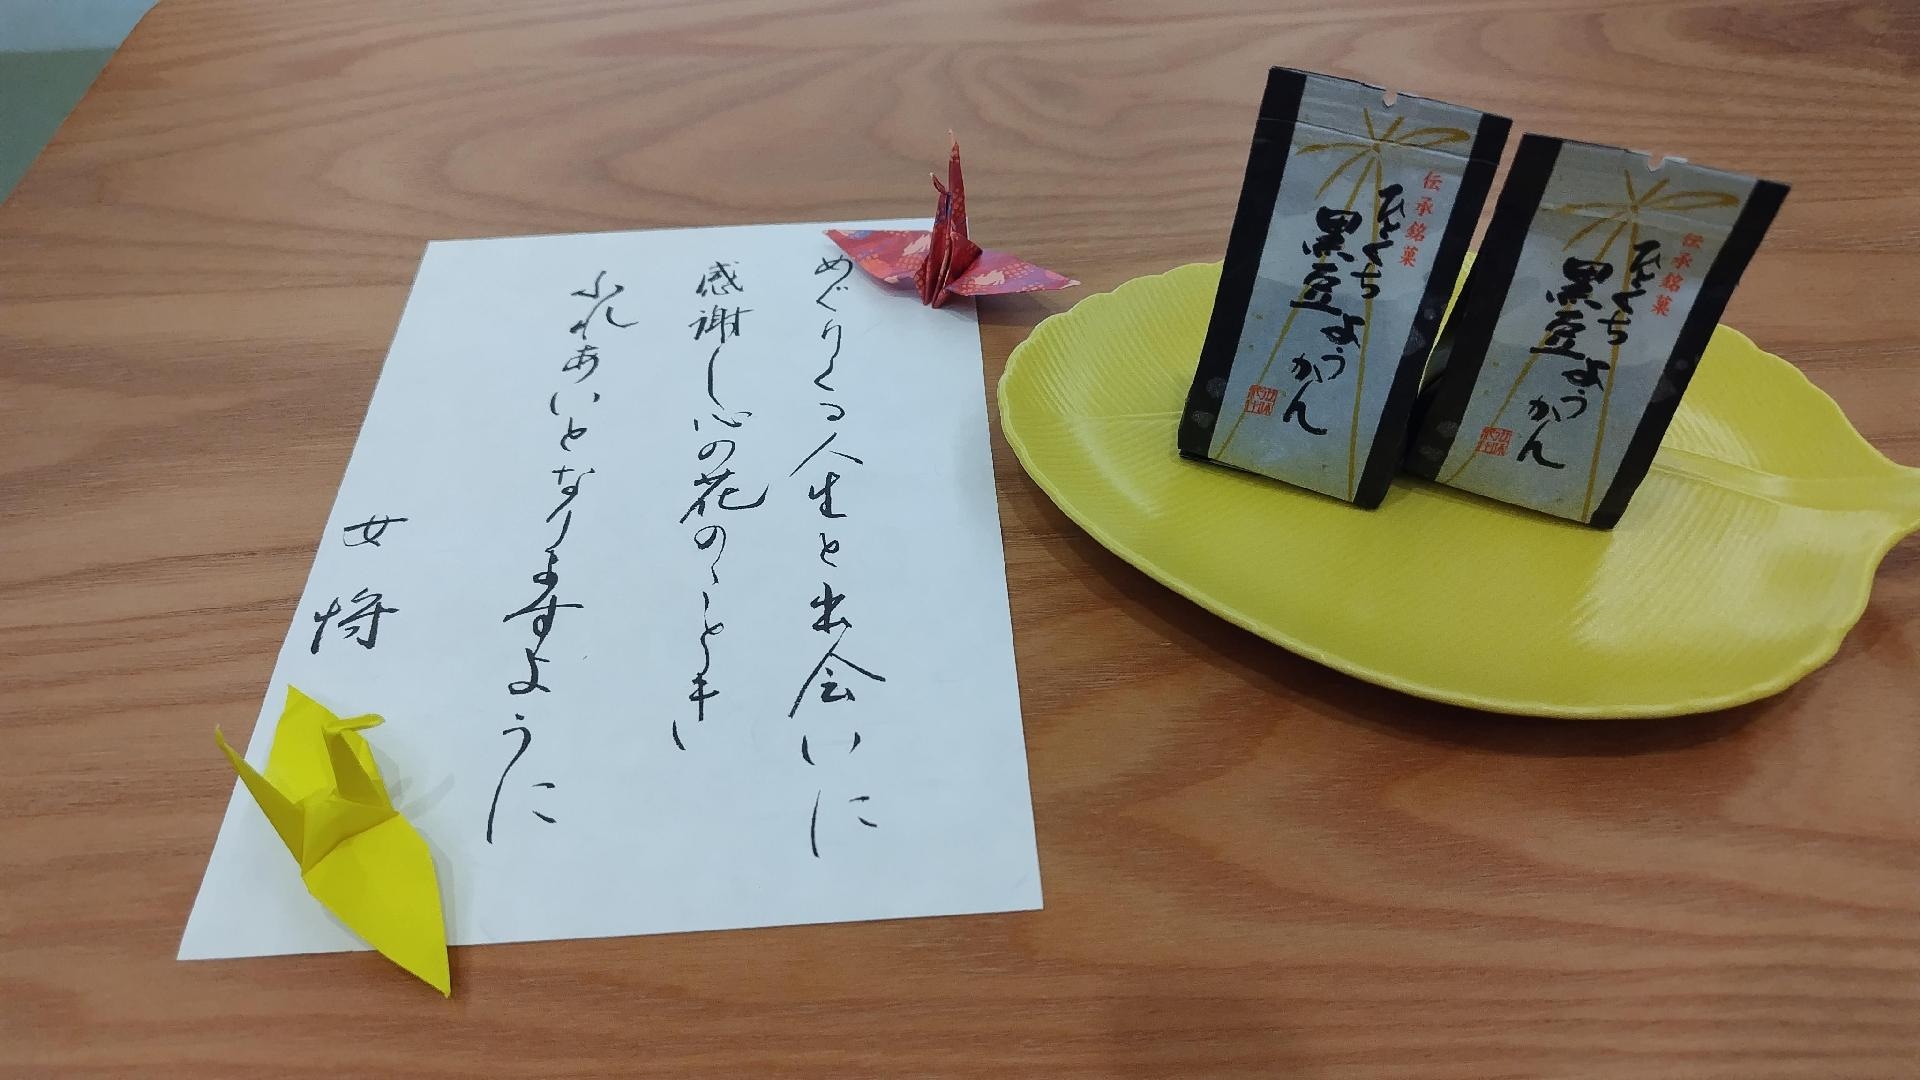 めぐりくる人生と出会いに
感謝し心の花のごとき
ふれあいとなりますように
女将
伝承銘菓
ひとくち
黒豆ようかん
伝承銘菓
ひとくち
黒豆ようかん